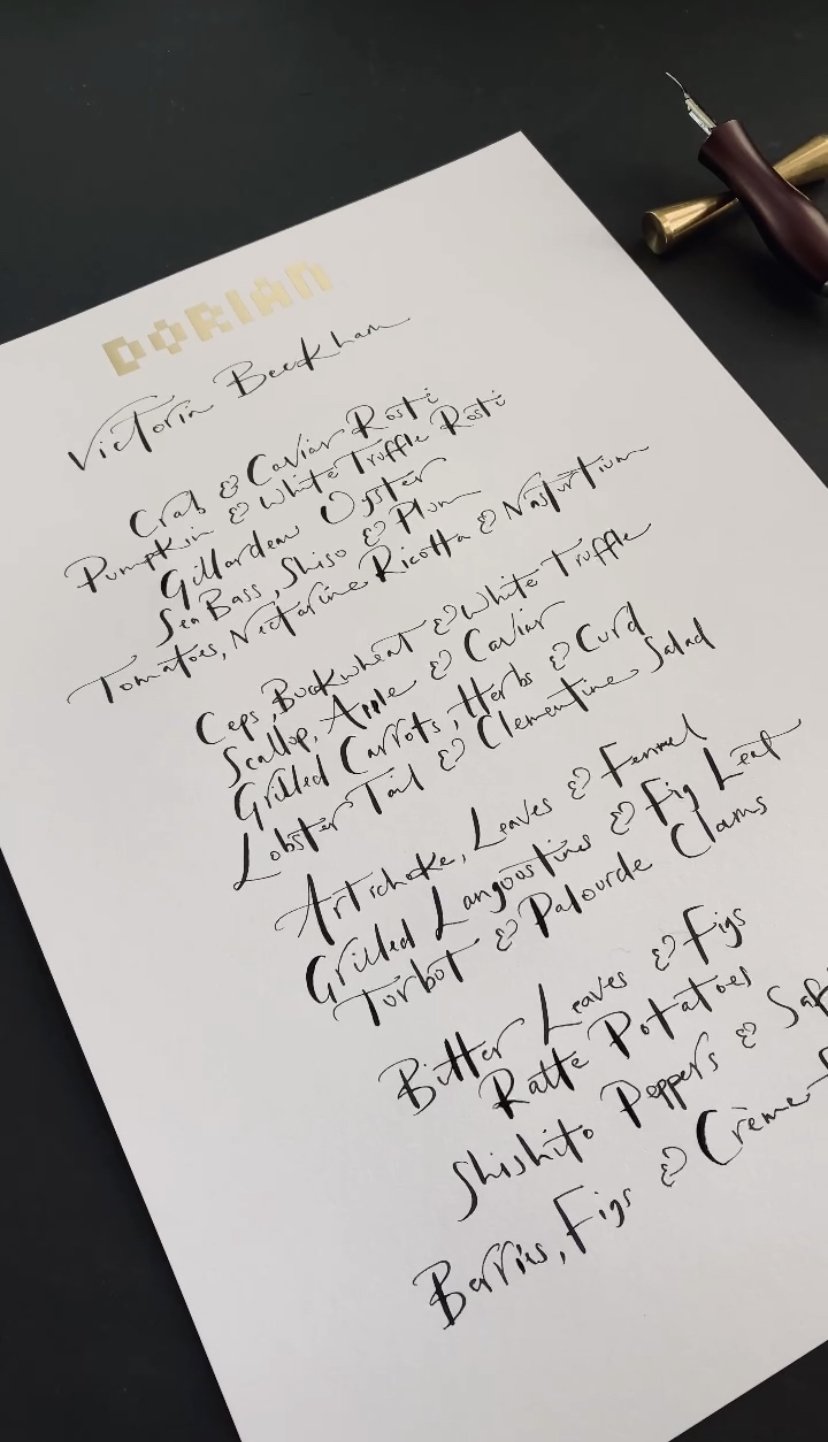 DORIAN
Victoria Beckham
Crab & Caviar Rosti
Pumpkin & White Truffle Rosti
Gillardeau Oyster
Sea Bass, Shiso & Plum
Tomatoes, Nectarine Ricotta & Nasturtium
Ceps, Buckwheat & White Truffle
Scallop, Apple & Caviar
Grilled Carrots, Herbs & Curd
Lobster Tail & Clementine Salad
Artichoke, Leaves & Fennel
Grilled Langoustines & Fig Leaf
Turbot & Palourde Clams
Bitter Leaves & Figs
Ratte Potatoes
Shishito Peppers &
Berries, Figs & Crème